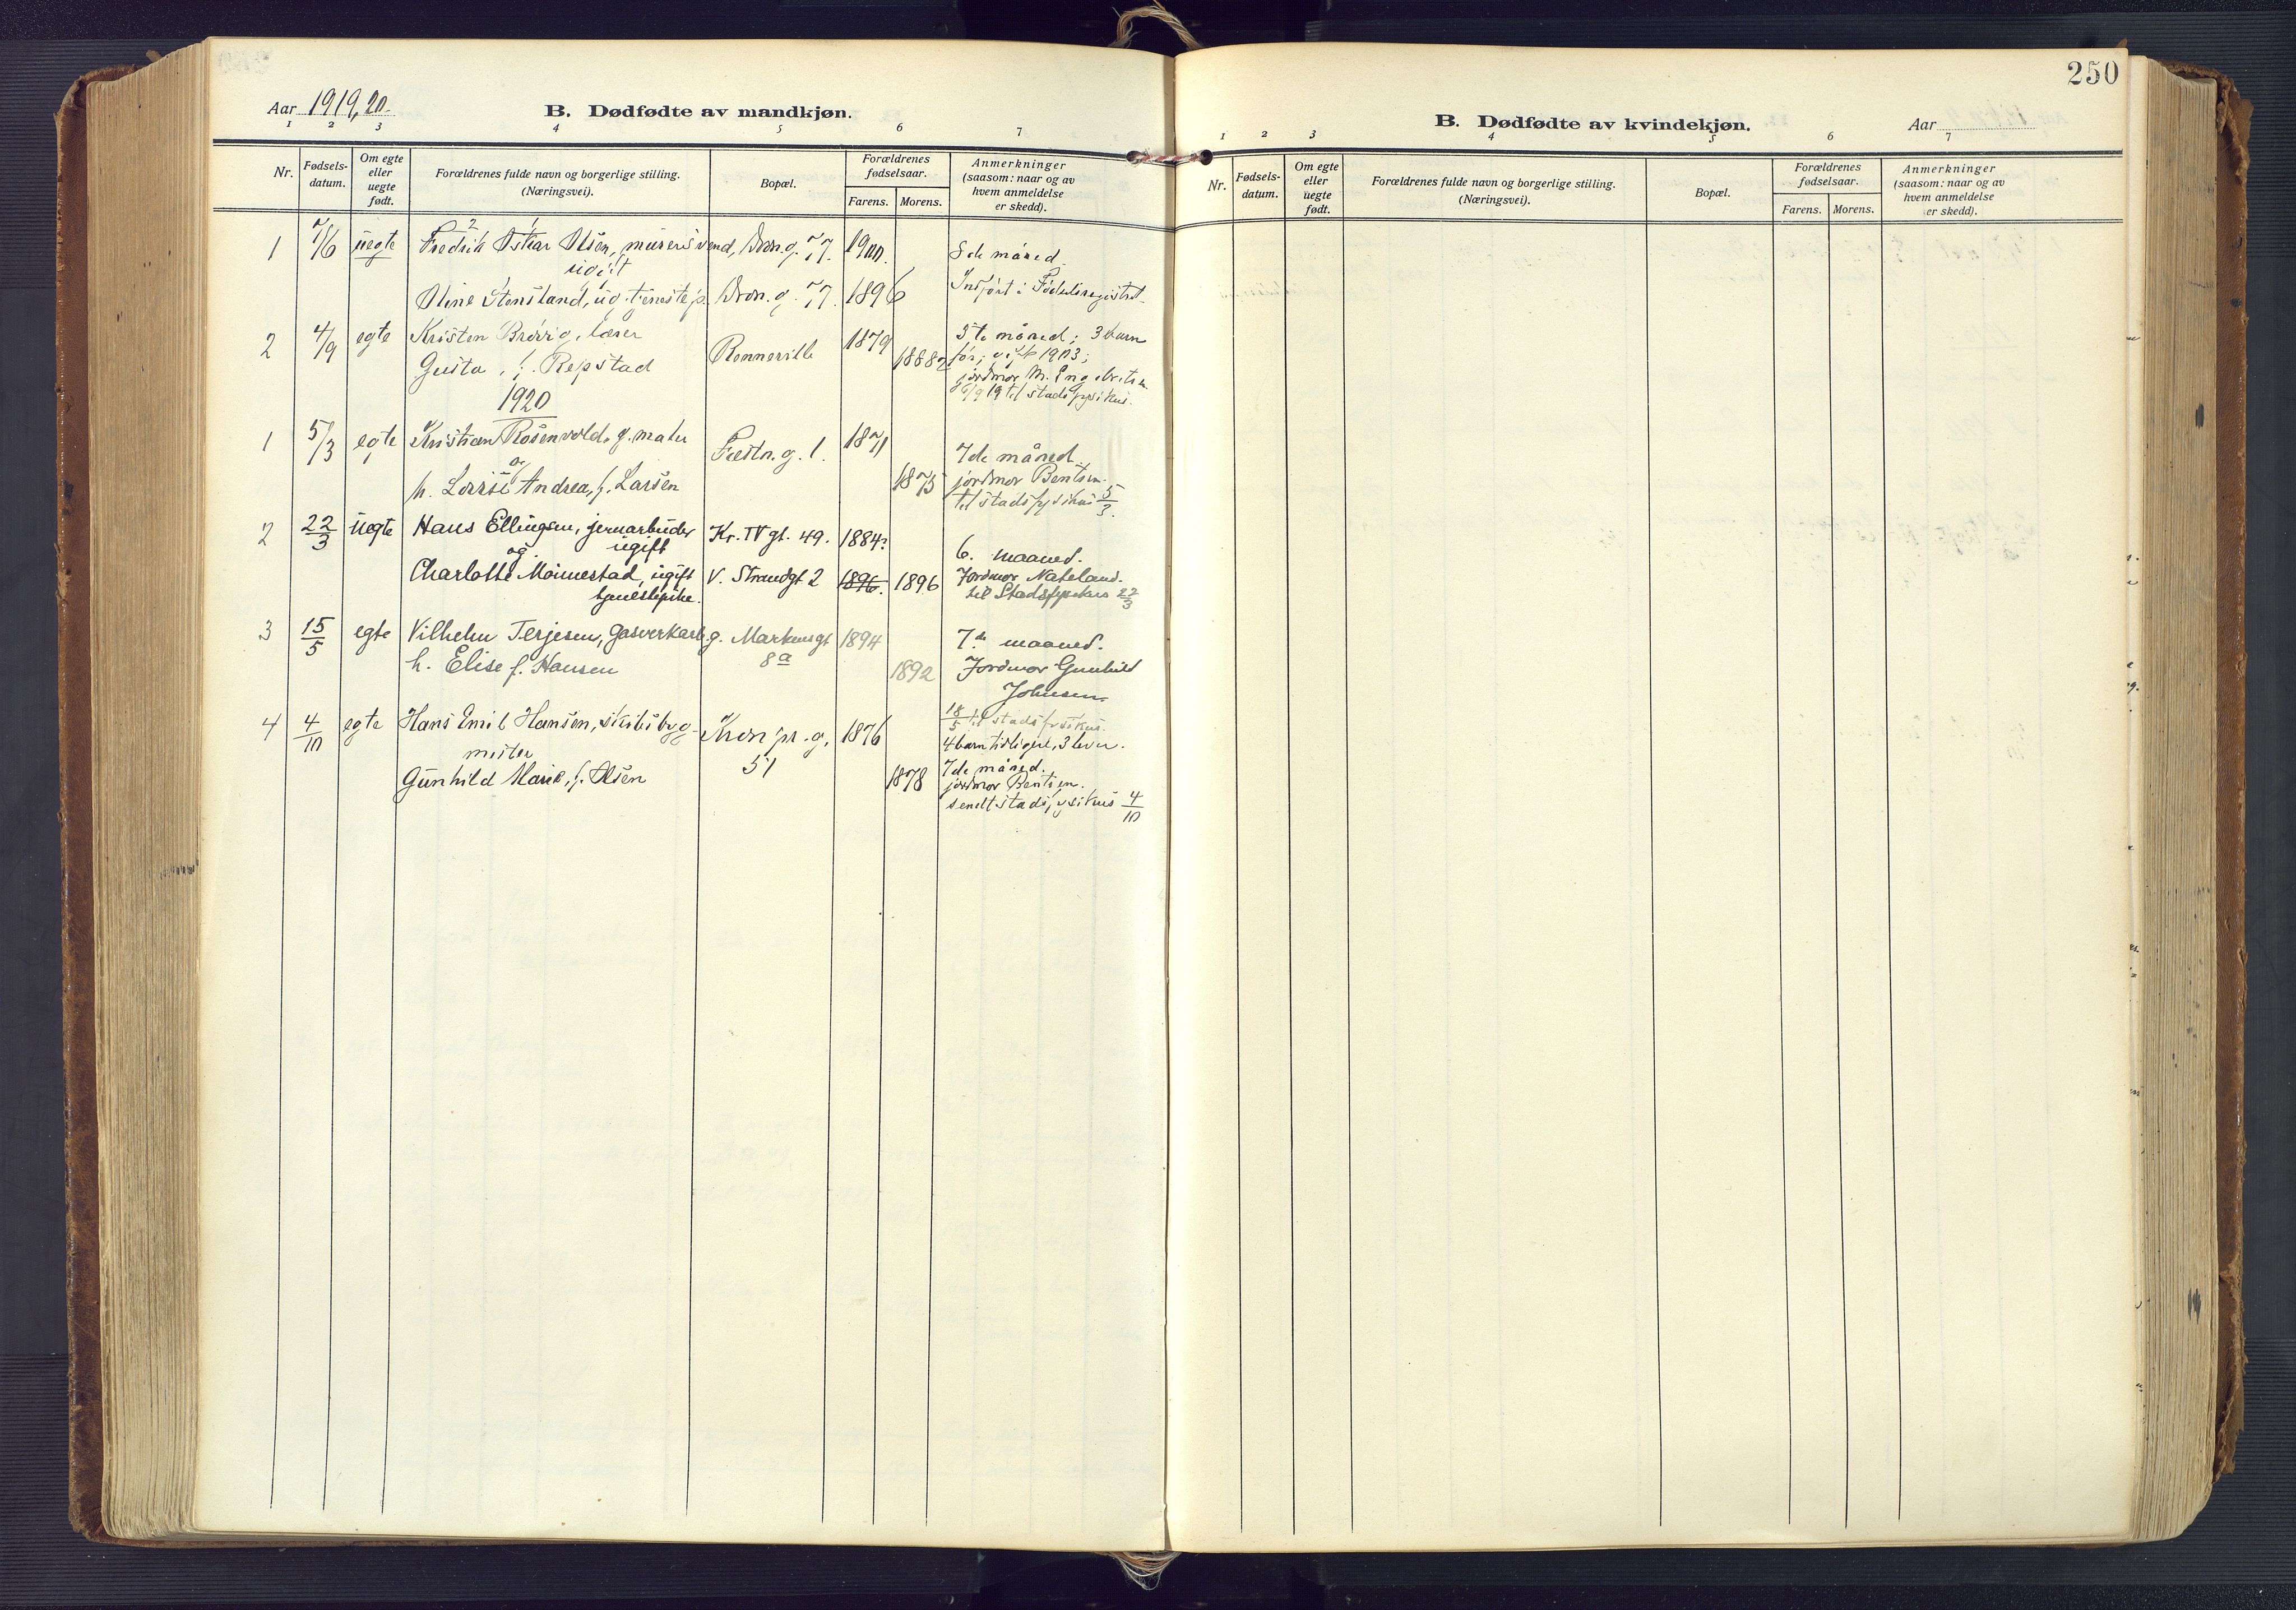 Aar 1919, 20.
B. Dødfødte av mandkjøn.
1 2 3 4 5 6 7
Nr.
Fødsels-
datum.
Om egte
eller
uegte
født.
Forældrenes fulde navn og borgerlige stilling.
(Næringsvei).
Bopæl.
Forældrenes
fødselsaar.
Farens. Morens.
Anmerkninger
(saasom: naar og av
hvem anmeldelse
er skedd).
1 7/6 uegte Fredrik Oskar Olsen, murersvend, Dron.g. 77. 1900. 8de måned.
ugift
Oline Stensland, ug. tjenestep. Dron. g. 77. 1896 Indført i Fødselsregistret.
2 4/9 egte Kristen Brøvig, lærer Rennervik 1879 5te måned; 3 barn
Gusta, f. Repstad 1882 før; gift 1903;
jordmor M. Engebretsen
6/9 19 til stadsfysikus.
1920
1 5/3 egte Kristian Rosenvold, g. maler Festn. g. 1. 1871
og
h. Lovise Andrea, f. Larsen 1875
7de måned
jordmor Bentsen.
til stadsfysikus 5/3.
2 22/3 uegte Hans Ellingsen, jernarbeider Kr. IV gt. 49. 1884?
ugift
og
Charlotte Moinnestad, ugift V. Strandgt 2 1896. 1896
tjenestepike.
6. maaned.
Jordmor Nateland.
til Stadsfysikus 22/3
3 15/5 egte Vilhelm Terjesen, Gasverkarb. g. Markensgt 1894
8a
h. Elise f. Hansen 1892
7de maaned.
Jordmor Gunhild
Johnsen
18/5 til stadsfysikus.
4 4/10 egte Hans Emil Hansen, skibsbyg- Kronpr. g. 1876
mester 51
Gunhild Marie, f. Olsen 1878
4 barn tidligere, 3 lever.
7de måned.
jordmor Bentsen.
sendt stadsfysikus 4/10
250
B. Dødfødte av kvindekjøn.
Aar
1 2 3 4 5 6 7
Nr.
Fødsels-
datum.
Om egte
eller
uegte
født.
Forældrenes fulde navn og borgerlige stilling.
(Næringsvei).
Bopæl.
Forældrenes
fødselsaar.
Farens. Morens.
Anmerkninger
(saasom: naar og av
hvem anmeldelse
er skedd).